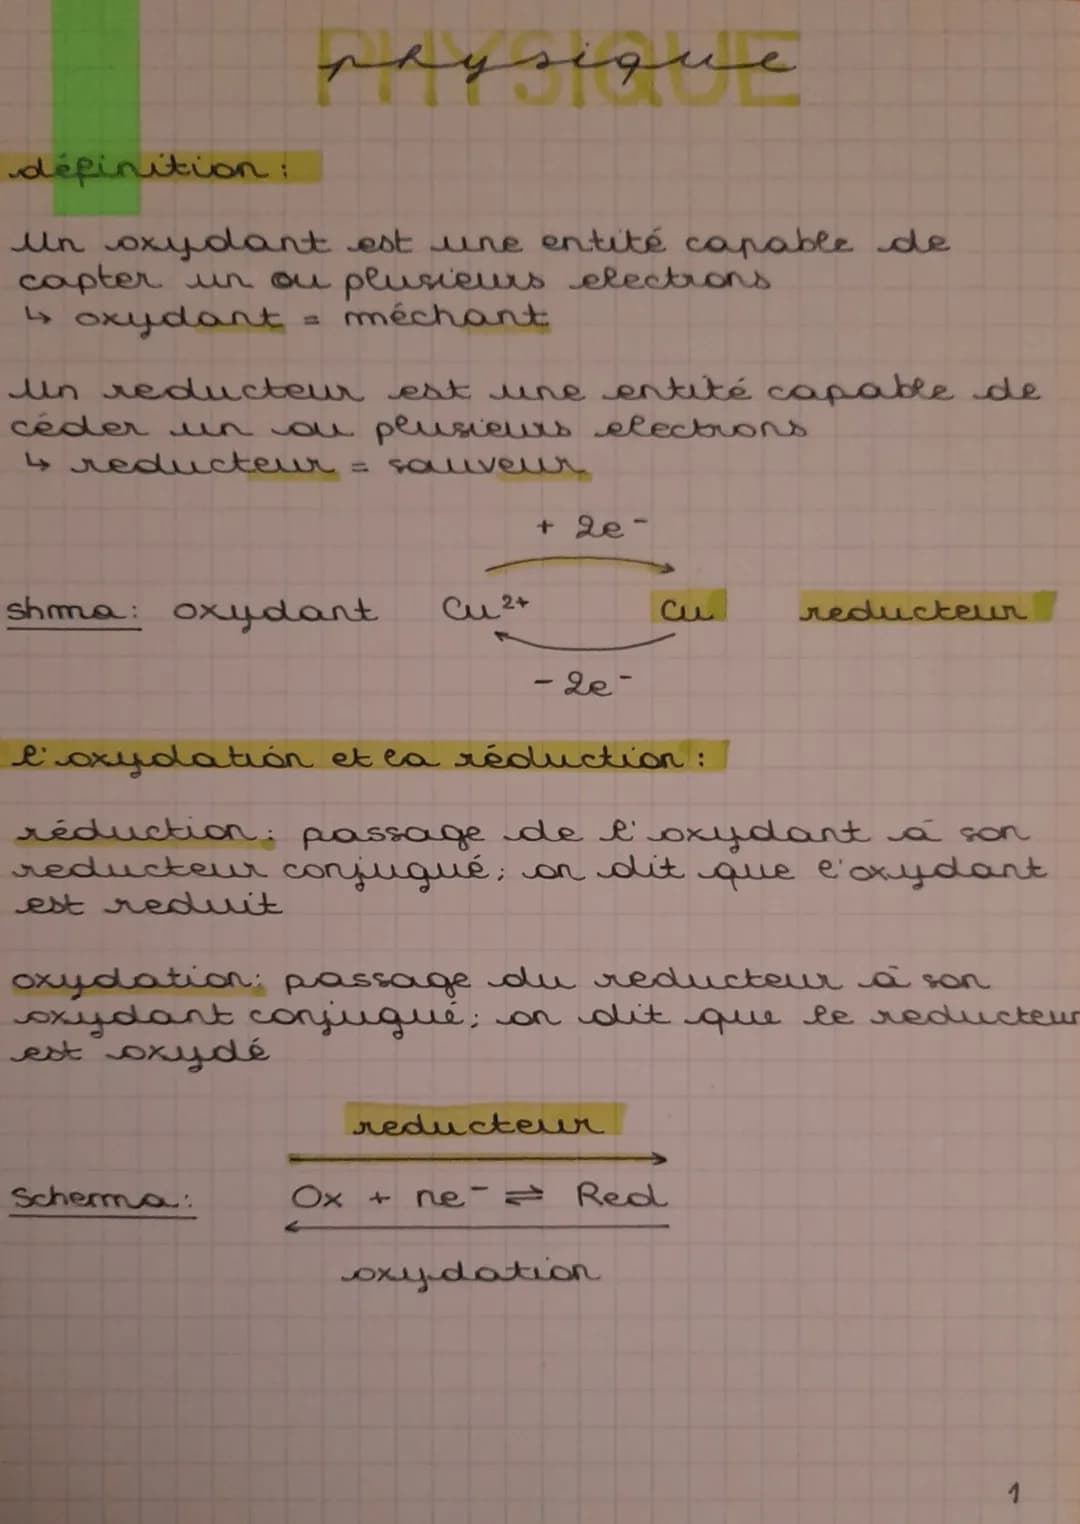 PHYSIQUE
physique
définition :
Un oxydant est une entité capable de
capter un ou plusieurs electrons
↳ oxydant = méchant
Un reducteur est une entité capable de
céder un ou plusieurs electrons
↳ reducteur = sauveur
+ 2e⁻
shma : oxydant Cu²⁺ Cu reducteur
- 2e⁻
l'oxydation et la réduction :
réduction : passage de l'oxydant à son
reducteur conjugué ; on dit que l'oxydant
est reduit
oxydation : passage du reducteur à son
oxydant conjugué ; on dit que le reducteur
est oxydé
reducteur
Schema : Ox + ne⁻ ⇌ Red
oxydation
1